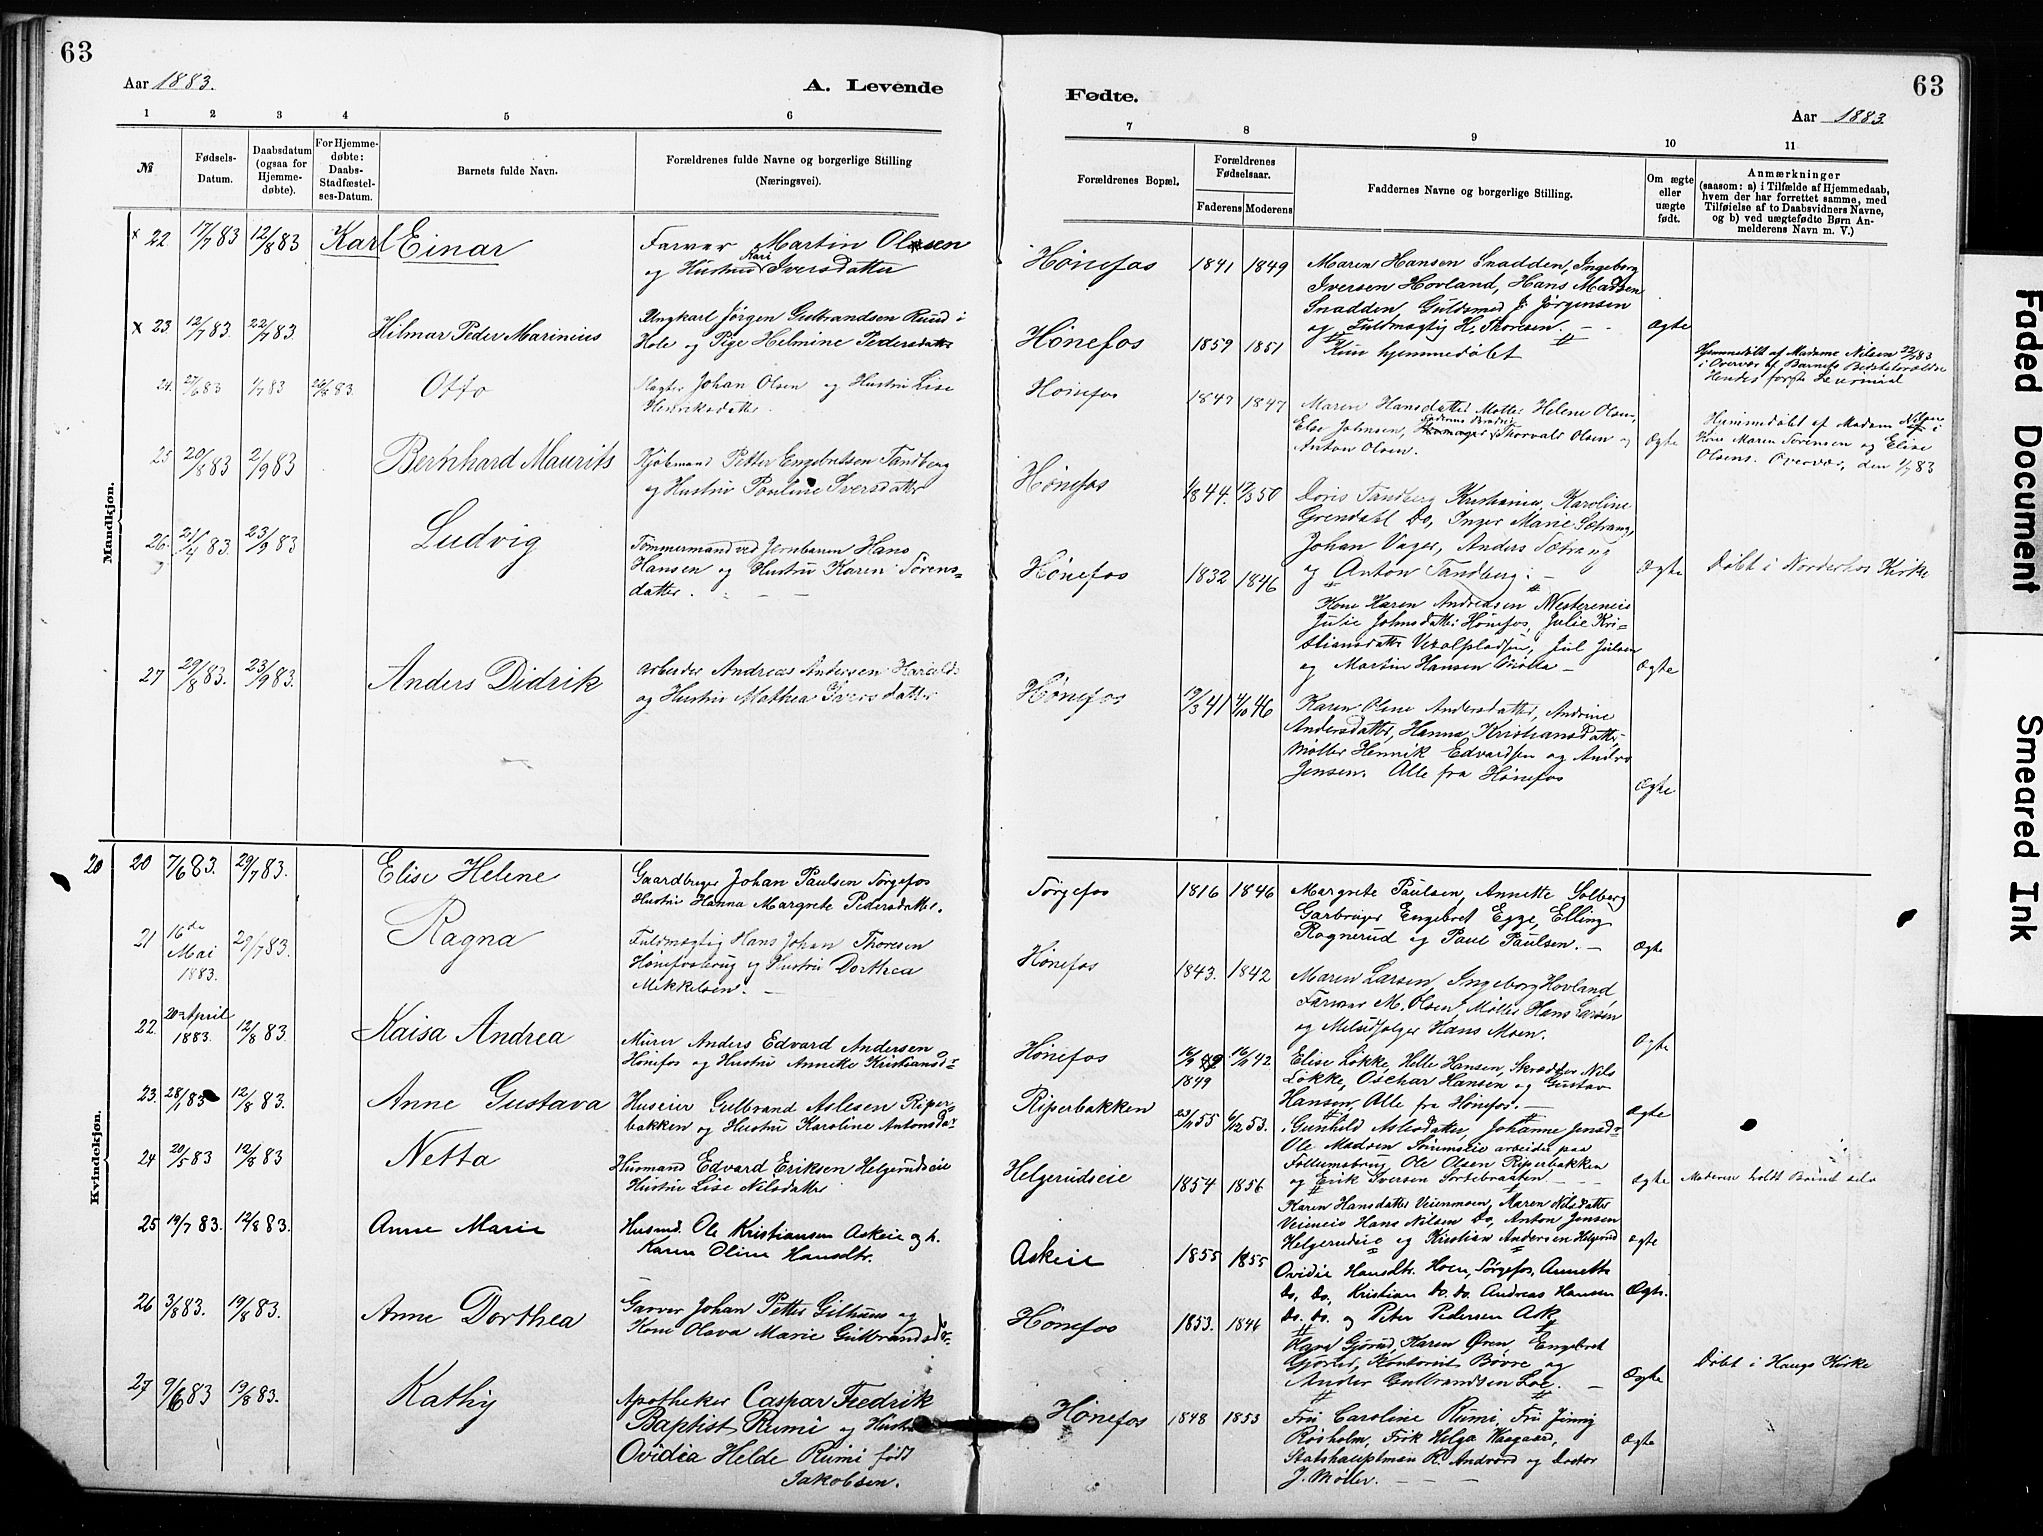 63
Aar 1883.
A. Levende
1 2 3 4 5 6
№
Fødsels-Datum.
Daabsdatum (ogsaa for Hjemme-døbte).
For Hjemme-døbte: Daabs-Stadfæstel-ses-Datum.
Barnets fulde Navn.
Forældrenes fulde Navne og borgerlige Stilling (Næringsvei).
Mandkjøn.
x 22 17/7 83 12/8 83 Karl Einar
Farver Martin Olsen
og Hustru Kari Iversdatter
x 23 12/7 83. 22/7 83. Hilmar Peder Marinius
Ungkarl Jørgen Gulbrandsen Ruud i
Hole og Pige Helmine Pedersdatter
24. 27/6 83 1/7 83 26/8 83. Otto
Slagter Johan Olsen og Hustru Lise
Henriksdatter
25 20/8 83 2/9 83 Bernhard Maurits
Kjøbmand Petter Engebretsen Tandberg
og Hustru Pauline Iversdatter
26 21/4 83. 23/9 83 Ludvig
Tømmermand ved Jernbanen Hans
Hansen og Hustru Karen Sørens-
datter.
27 29/8 83. 23/9 83. Anders Didrik
Arbeider Andreas Andersen
og Hustru Mathea Iversdatter
Kvindekjøn.
20 20 7/6 83. 29/7 83. Elise Helene
Gaardbruger Johan Paulsen Sørgefos
Hustru Hanna Margrete Pedersdatter.
21 16de Mai 1883. 29/7 83. Ragna
Fuldmægtig Hans Johan Thoresen
Hønefosbrug og Hustru Dorthea
Mikkelsen. –
22. 20de April 1883. 12/8 83. Kaisa Andrea
Murer Anders Edvard Andersen
Hønefos og Hustru Annette Kristiansd-
23. 28/1 83 12/8 83. Anne Gustava
Huseier Gulbrand Aslesen Riper-
bakken og Hustru Karoline Antonsd-
24 20/5 83 12/8 83 Netta
Husmand Edvard Eriksen Helgerudseie
Hustru Lise Nilsdatter
25 19/7 83. 12/8 83. Anne Marie
Husmd. Ole Kristiansen Askeie og h.
Karen Oline Hansdtr.
26 3/8 83. 19/8 83. Anne Dorthea
Garver Johan Petter Gilhuus og
Kone Olava Marie Gulbrandsd-
27 9/6 83 19/8 83. Kathy
Apotheker Caspar Fredrik
Baptist Rumi og Hustru
Ovidia Helde Rumi født
Jakobsen.
63
Fødte.
Aar 1883
7 8 9 10 11
Forældrenes Bopæl.
Forældrenes Fødselsaar.
Faderens Moderens
Faddernes Navne og borgerlige Stilling.
Om ægte eller uægte født.
Anmærkninger
(saasom: a) i Tilfælde af Hjemmedaab,
hvem der har forrettet samme, med
Tilføielse af to Daabsvidners Navne,
og b) ved uægtefødte Børn An-
melderens Navn m. V.)
Hønefos 1841 1849
Maren Hansen Snadden, Ingeborg
Iversen Hovland, Hans Madsen
Snadden, Guldsmed J. Jørgensen
og Fuldmægtig H. Thoresen. –
Ægte
Hønefos 1859 1851
Kun hjemmedøbt
Hjemmedøbt af Madame Nilsen 22/7 83
i Overvær af Barnets Bedsteforældre
Hendes første
Hønefos 1847 1847
Maren Hansdatter Møller, Helene Olsen,
Else Johnsen, Thorvald Olsen og
Anton Olsen.
Ægte
Hjemmedøbt af Madam Nilsen i
Kone Maren Sørensen og Elise
Olsens Overvær, den 1/7 83
Hønefos 1844. 17/3 50
Doris Tandberg Kristiania, Karoline
Grendahl Do, Inger Marie Sætrang,
Johan Vager, Anders Sætrang
og Anton Tandberg. –
Ægte
Hønefos 1832 1846
Kone Karen Andreasen
Julie Johnsdatter Hønefos, Julie Kri-
stiansdatter Juel Julsen
og Martin Hansen –
Ægte
Døbt i Norderhov Kirke
Hønefos 19/3 41 4/10 46
Karen Oline Andersdatter, Andrine
Andersdatter, Hanna Kristiansdatter
Møller Henrik Edvardsen og Andrs
Jensen. Alle fra Hønefos
Ægte
Sørgefos 1816 1846
Margrete Paulsen, Annette Solberg
Garbruger Engebret Egge, Elling
Rognerud og Paul Paulsen. –
Ægte
Hønefos 1843. 1842
Maren Larsen, Ingeborg Hovland
Farver M. Olsen, Møller Hans Larsen
og Meludsælger Hans Moen.
Ægte
Hønefos 1849 16/11 42
Elise Løkke, Helle Hansen, Skrædder Nils
Løkke, Oschar Hansen og Gustav
Hansen, Alle fra Hønefos. –
Ægte
Riperbakken 23/11 55 6/12 53.
Gunhild Aslesdatter, Johanne Jensd-
Ole Madsen arbeider paa
Follumsbrug, Ole Olsen Riperbakken
og Erik Iversen Sortebraaten – – –
Ægte
Moderen holdt Barnet selv
Helgerudseie 1854 1856
Karen Hansdatter Veienmoen, Maren Nilsdatter
Veieneie Hans Nilsen Do, Anton Jensen
Helgerudeie og Kristian Andersen Helgerud
Ægte
Askeie 1855 1855
Ovidie Hansdtr. Hoen, Sørgefos, Annette
do, do, Kristian do. do. Andreas Hansen
do, do. og Peter Pedersen Ask
Ægte.
Hønefos 1853. 1846
Gjørud, Karen Øren, Engebret
Gjørud, Kontorist Bøvre og
Ander Gulbrandsen Loe. –
Ægte
Døbt i Haugs Kirke
Hønefos 1848 1853
Fru Caroline Rumi, Fru Jinny
Rosholm, Frk Helga Waagaard,
Statshauptman R. Andvord og Doctor
J. Møller. – –
Ægte
Faded Document
Smeared Ink